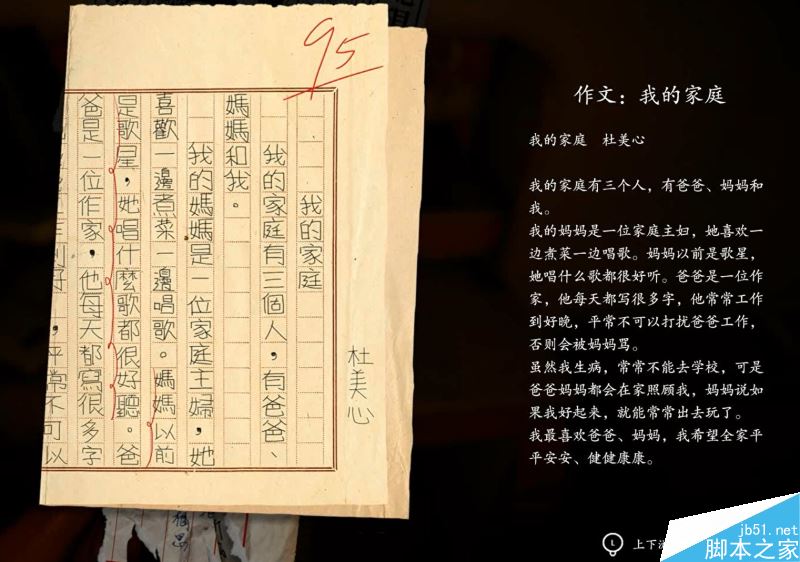 95
杜美心
我的家庭
我的家庭有三個人，有爸爸、
媽媽和我。
我的媽媽是一位家庭主婦，她
喜歡一邊煮菜一邊唱歌。媽媽以前
是歌星，她唱什麼歌都很好聽。爸
爸是一位作家，他每天都寫很多字
，平常不可以
作文：我的家庭
我的家庭 杜美心
我的家庭有三个人，有爸爸、妈妈和
我。
我的妈妈是一位家庭主妇，她喜欢一
边煮菜一边唱歌。妈妈以前是歌星，
她唱什么歌都很好听。爸爸是一位作
家，他每天都写很多字，他常常工作
到好晚，平常不可以打扰爸爸工作，
否则会被妈妈骂。
虽然我生病，常常不能去学校，可是
爸爸妈妈都会在家照顾我，妈妈说如
果我好起来，就能常常出去玩了。
我最喜欢爸爸、妈妈，我希望全家平
平安安、健健康康。
L 上下
jb51.net
脚本之家